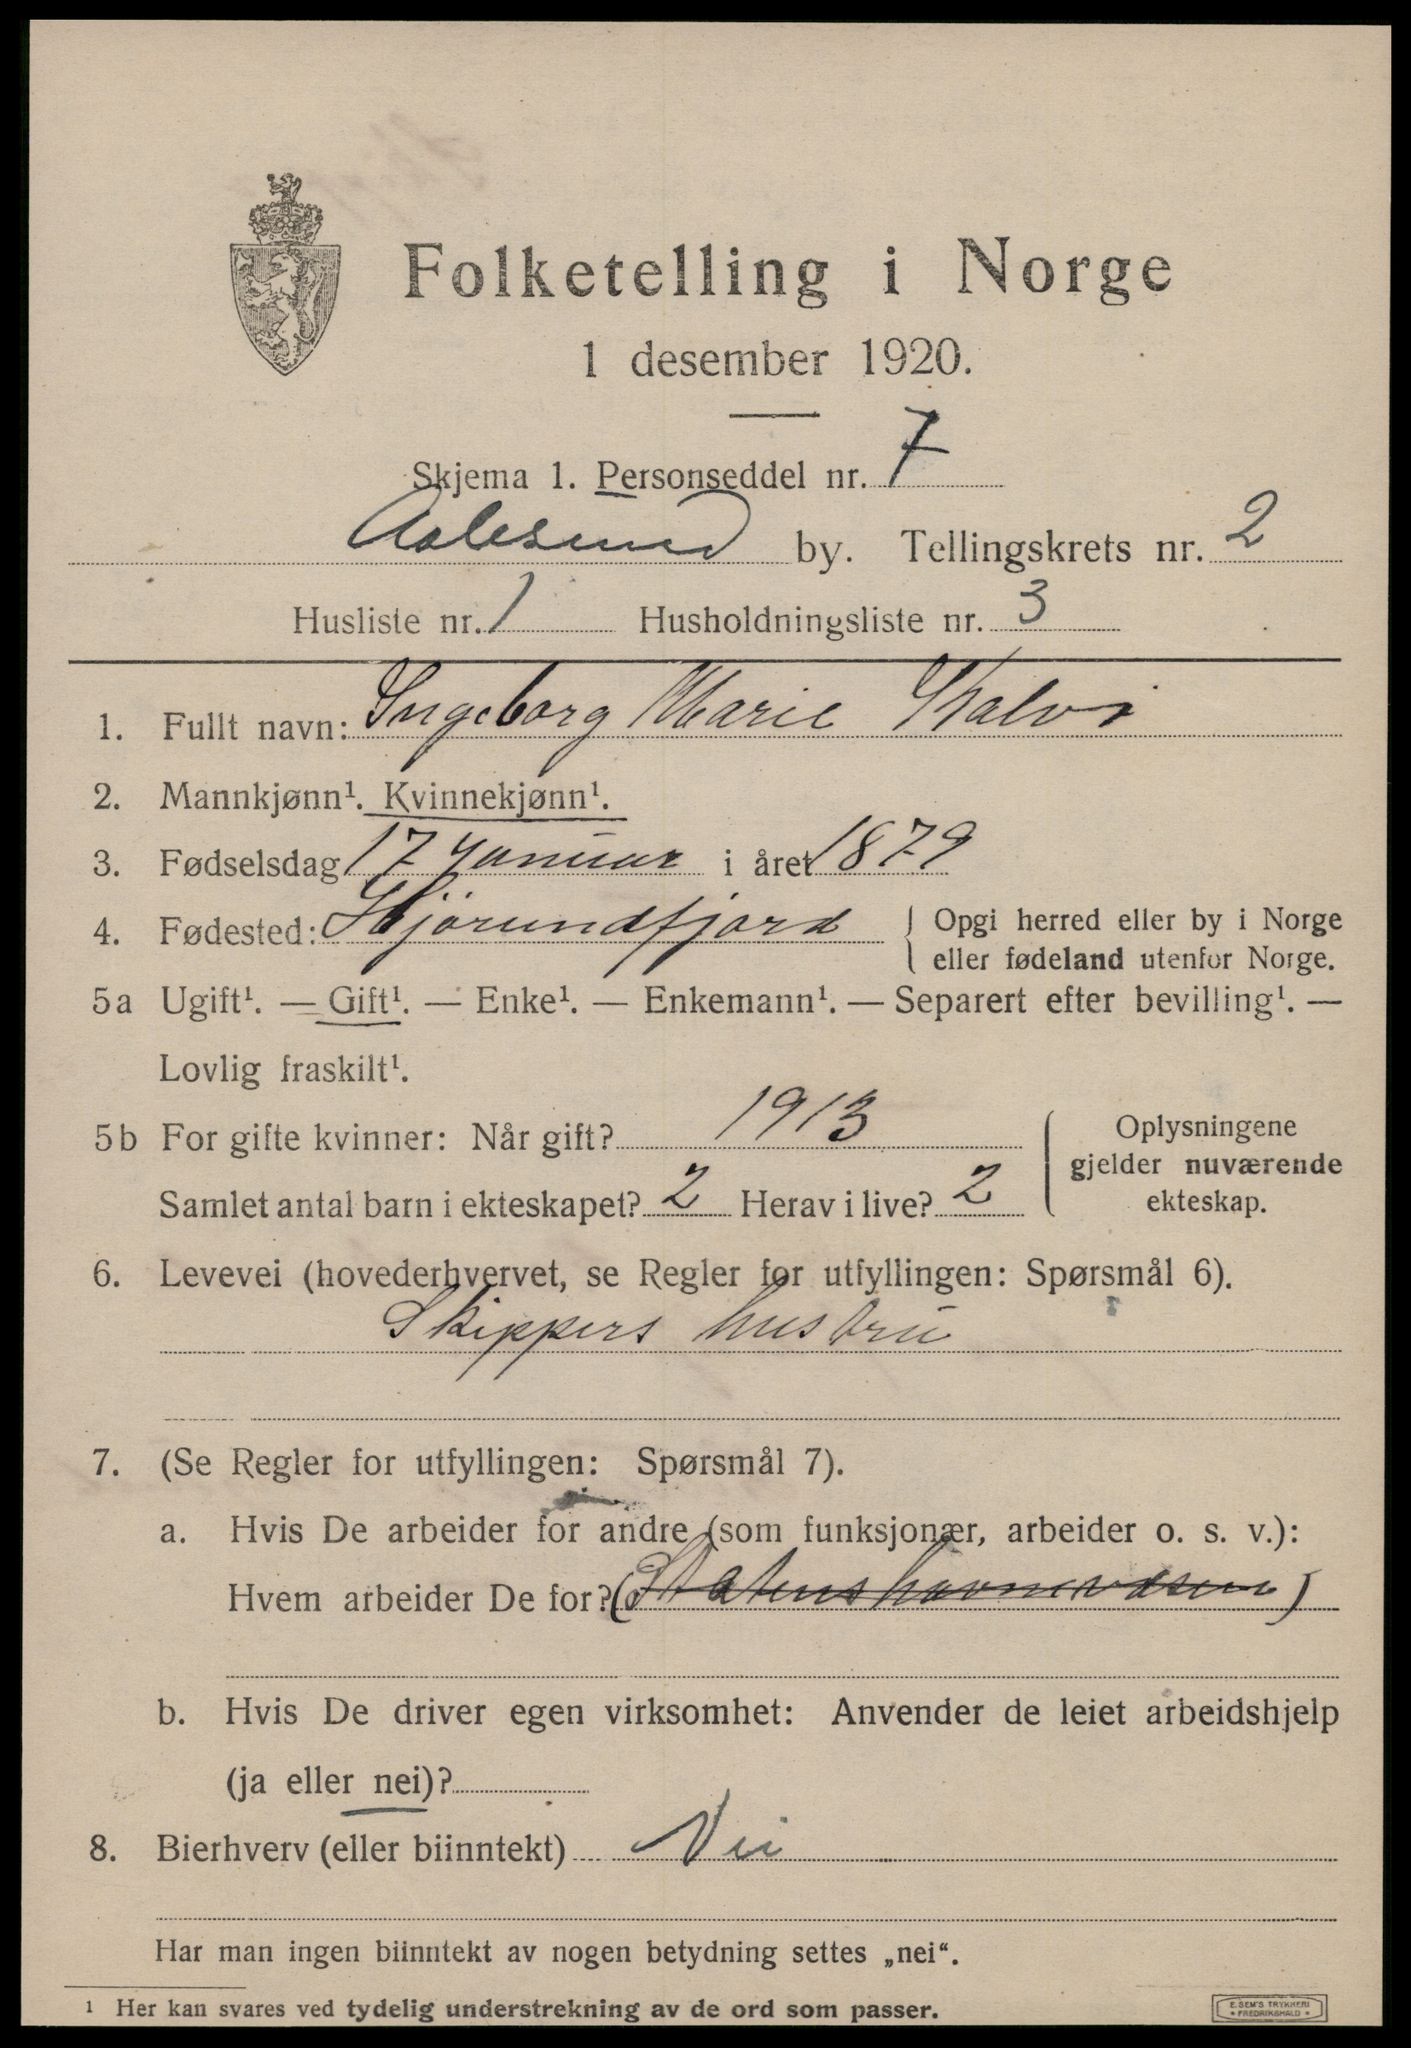 Folketelling i Norge
1 desember 1920.
Skjema 1. Personseddel nr. 7
Aalesund by. Tellingskrets nr. 2
Husliste nr. 1 Husholdningsliste nr. 3
1. Fullt navn: Ingeborg Marie Kalvø
2. Mannkjønn¹. Kvinnekjønn¹.
3. Fødselsdag 17 Januar i året 1879
4. Fødested: Hjørundfjord { Opgi herred eller by i Norge
eller fødeland utenfor Norge.
5a Ugift¹. — Gift¹. — Enke¹. — Enkemann¹. — Separert efter bevilling¹. —
Lovlig fraskilt¹.
5b For gifte kvinner: Når gift? 1913
Samlet antal barn i ekteskapet? 2 Herav i live? 2
{ Oplysningene
gjelder nuværende
ekteskap.
6. Levevei (hovederhvervet, se Regler for utfyllingen: Spørsmål 6).
Skippers hustru
7. (Se Regler for utfyllingen: Spørsmål 7).
a. Hvis De arbeider for andre (som funksjonær, arbeider o. s. v.):
Hvem arbeider De for? (Statens havnevæsen)
b. Hvis De driver egen virksomhet: Anvender de leiet arbeidshjelp
(ja eller nei)?
8. Bierhverv (eller biinntekt) Nei
Har man ingen biinntekt av nogen betydning settes „nei“.
¹ Her kan svares ved tydelig understrekning av de ord som passer.
E. SEM'S TRYKKERI
• FREDRIKSHALD •